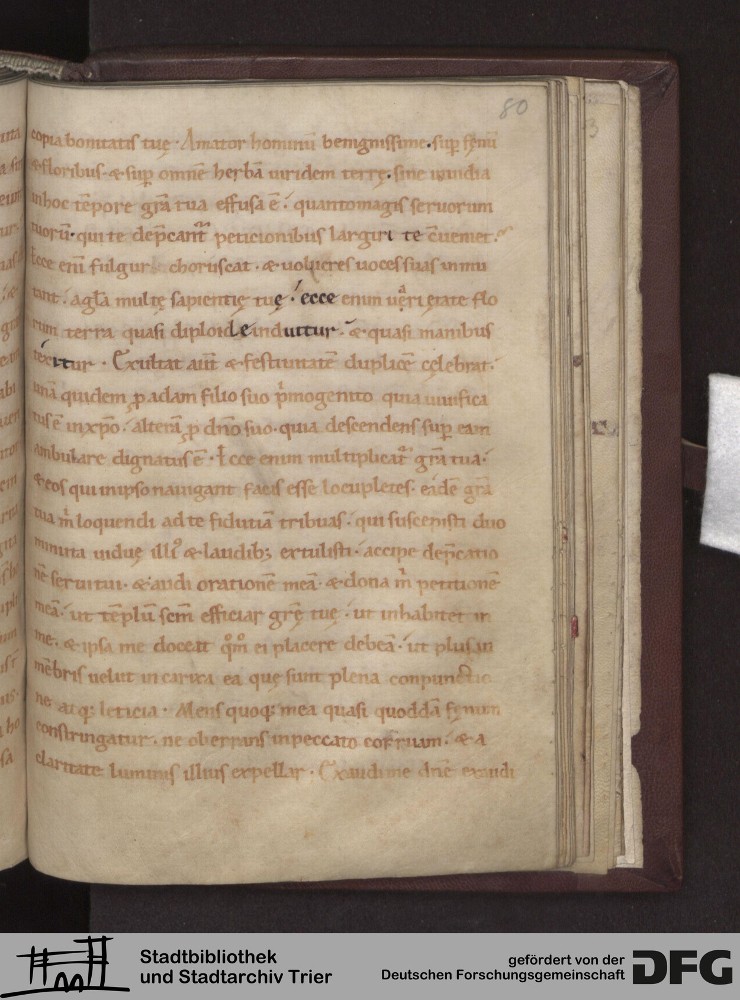 80
copia bonitatis tuę · Amator hominū benignissime · sup fęnū
& floribus · & sup omnē herbā uiridem terrę · sine inuidia
inhoc tēpore grā tua effusa ē · quantomagis seruorum
tuorū · qui te dep̄cant peticionibus largiri te c̄ueniet ·
Ecce enī fulgur choruscat · & uolucres uoces suas inmu
tant · multę sapientię tuę · ecce enim uarietate flo
rum terra quasi diploide induitur · & quasi manibus
texitur · Exultat aūt & festiuitatē duplicē cęlebrat ·
unā quidem ꝓ adam filio suo p̍mogenito quia uiuifica
tus ē inxp̄o · alterā ꝓ dn̄o suo · quia descendens sup eam
ambulare dignatus ē · Ecce enim multiplicat grā tua ·
& eos qui inipso nauigant facis esse locupletes · eadē grā
tua m̍ loquendi ad te fidutiā tribuas · qui suscepisti duo
minuta uiduę illi & laudibꝫ extulisti · accipe dep̄catio
nē serui tui · & audi orationē meā · & dona m̍ petitionē
meā · ut tēplū scm̄ efficiar grē tuę · ut inhabitet in
me · & ipsa me doceat qm̊ ei placere debeā · ut plusin
mēbris uelut in ea quę sunt plena conpunctio
ne atqꝫ leticia · Mens quoqꝫ mea quasi quoddā fręnum
constringatur · ne oberrans inpeccato · & a
claritate luminis illius expellar · Exaudi me dn̄e exaudi
3
Stadtbibliothek
und Stadtarchiv Trier
gefördert von der
Deutschen Forschungsgemeinschaft
DFG